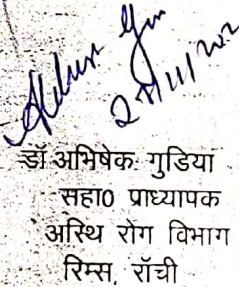 डॉ अभिषेक गुडिया
सहा0 प्राध्यापक
अस्थि रोग विभाग
रिम्स, रॉची